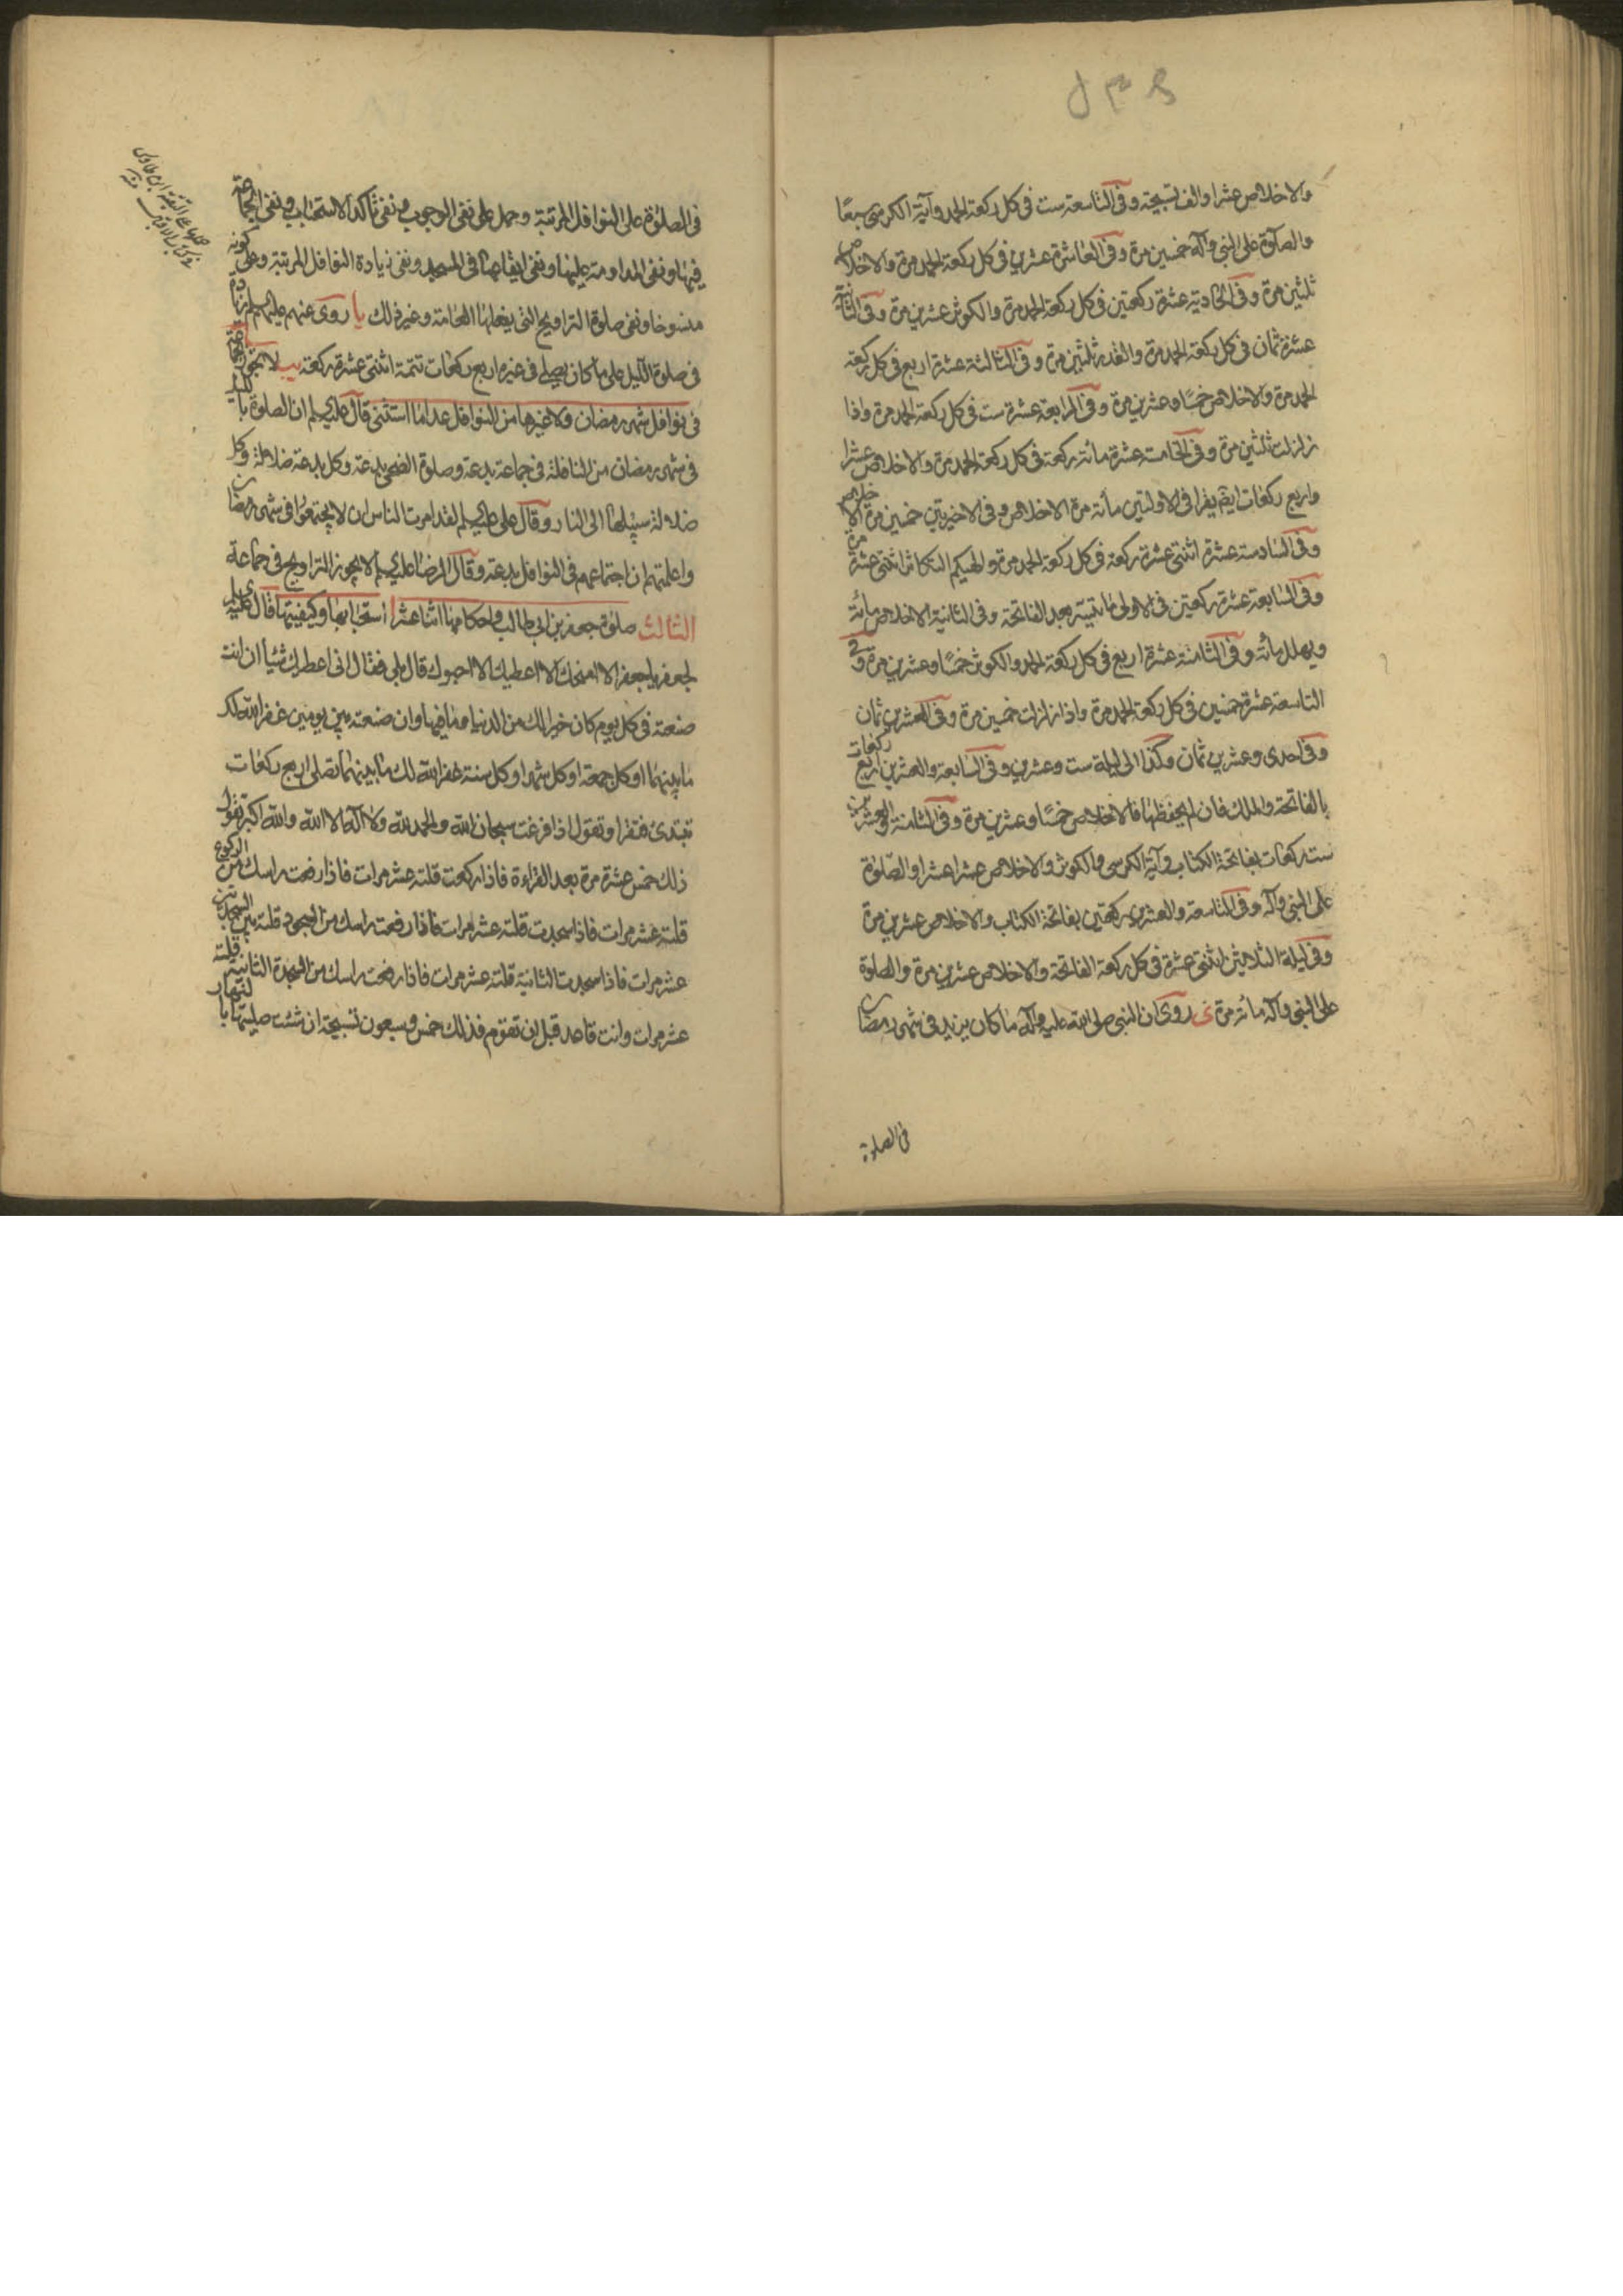 والاخلاص عشرا والف تسبيحة وفى التاسعة ست فى كل ركعة الحمد وآية الكرسى سبعًا
والصلوة على النبى وآله خمسين مرة وفى العاشرة عشرين فى كل ركعة الحمد مرة والاخلاص
ثلثين مرة وفى الحادية عشرة ركعتين فى كل ركعة الحمد مرة والكوثر عشرين مرة وفى الثانية
عشرة ثمان فى كل ركعة الحمد مرة والقدر ثلثين مرة وفى الثالثة عشرة اربع فى كل ركعة
الحمد مرة والاخلاص خمسًا وعشرين مرة وفى الرابعة عشرة ست فى كل ركعة الحمد مرة واذا
زلزلت ثلثين مرة وفى الخامسة عشرة مائة ركعة فى كل ركعة الحمد مرة والاخلاص عشرا
واربع ركعات ايضم يقرا فى الاولتين مائة مرة الاخلاص وفى الاخيرتين خمسين مرة الاخلاص
وفى السادسة عشرة اثنتى عشرة ركعة فى كل ركعة الحمد مرة والهيكم التكاثر اثنتى عشرة مرة
وفى السابعة عشرة ركعتين فى الاولى ماتيسر بعد الفاتحة وفى الثانية الاخلاص مائة
ويهلل مائة وفى الثامنة عشرة اربع فى كل ركعة الحمد والكوثر خمسًا وعشرين مرة وفى
التاسعة عشرة خمسين فى كل ركعة الحمد مرة واذا زلزلت خمسين مرة وفى العشرين ثمان
وفى احدى وعشرين ثمان وكذا الى ليلة ست وعشرين وفى السابعة والعشرين اربع ركعات
بالفاتحة والملك فان لم يحفظها فالاخلاص خمسًا وعشرين مرة وفى الثامنة والعشرين
ست ركعات بفاتحة الكتاب وآية الكرسى والكوثر والاخلاص عشرا عشرا والصّلوة
على النبى وآله وفى التاسعة والعشرين ركعتين بفاتحة الكتاب والاخلاص عشرين مرة
وفى ليلة الثلاثين اثنتى عشرة فى كل ركعة الفاتحة والاخلاص عشرين مرة والصلوة
على النبى وآله مائة مرة ى روى ان النبى صلى الله عليه وآله ما كان يزيد فى شهر رمضان
فى الصلوة
فى الصلوة على النوافل المرتبة وحمل على نفى الوجوب ونفى تأكد الاستحباب ونفى الجماعة
فيها ونفى المداومة عليها ونفى ايقاعها فى المسجد ونفى زيادة النوافل المرتبة وعلى كونه
منسوخا ونفى صلوة التراويح التى يفعلها العامة وغير ذلك يا روى عنهم عليهم السلم زيادة
فى صلوة الليل على ما كان يصلى فى غيره اربع ركعات تتمة اثنتى عشرة ركعة يب لا تجوز الجماعة
فى نوافل شهر رمضان ولا غيرها من النوافل عدا ما استثنى قال عليه السلم ان الصلوة بالليل
فى شهر رمضان من النافلة فى جماعة بدعة وصلوة الضحى بدعة وكل بدعة ضلالة وكل
ضلالة سبيلها الى النار وقال على عليه السلم لقد امرت الناس ان لا يجتمعوا فى شهر رمضان
واعلمتهم ان اجتماعهم فى النوافل بدعة وقال الرضا عليه السلم لا يجوز التراويح فى جماعة
الثالث صلوة جعفر بن ابى طالب واحكامها اثنا عشر ا استحبابها وكيفيتها قال عليه السلم
لجعفر يا جعفر الا امنحك الا اعطيك الا احبوك قال بلى فقال انى اعطيك شيئا ان انت
صنعته فى كل يوم كان خيرا لك من الدنيا وما فيها وان صنعته بين يومين غفر الله لك
ما بينهما او كل جمعة او كل شهر او كل سنة غفر الله لك ما بينهما تصلى اربع ركعات
تبتدئ فتقرا وتقول اذا فرغت سبحان الله والحمد لله ولا اله الا الله والله اكبر تقول
ذلك خمس عشرة مرة بعد القراءة فاذا ركعت قلته عشر مرات فاذا رفعت راسك من الركوع
قلته عشر مرات فاذا سجدت قلته عشر مرات فاذا رفعت راسك من السجود قلته بين السجدتين
عشر مرات فاذا سجدت الثانية قلته عشر مرات فاذا رفعت راسك من السجدة الثانية قلته
عشر مرات وانت قاعد قبل ان تقوم فذلك خمس وسبعون تسبيحة ان شئت صليتها بالنهار